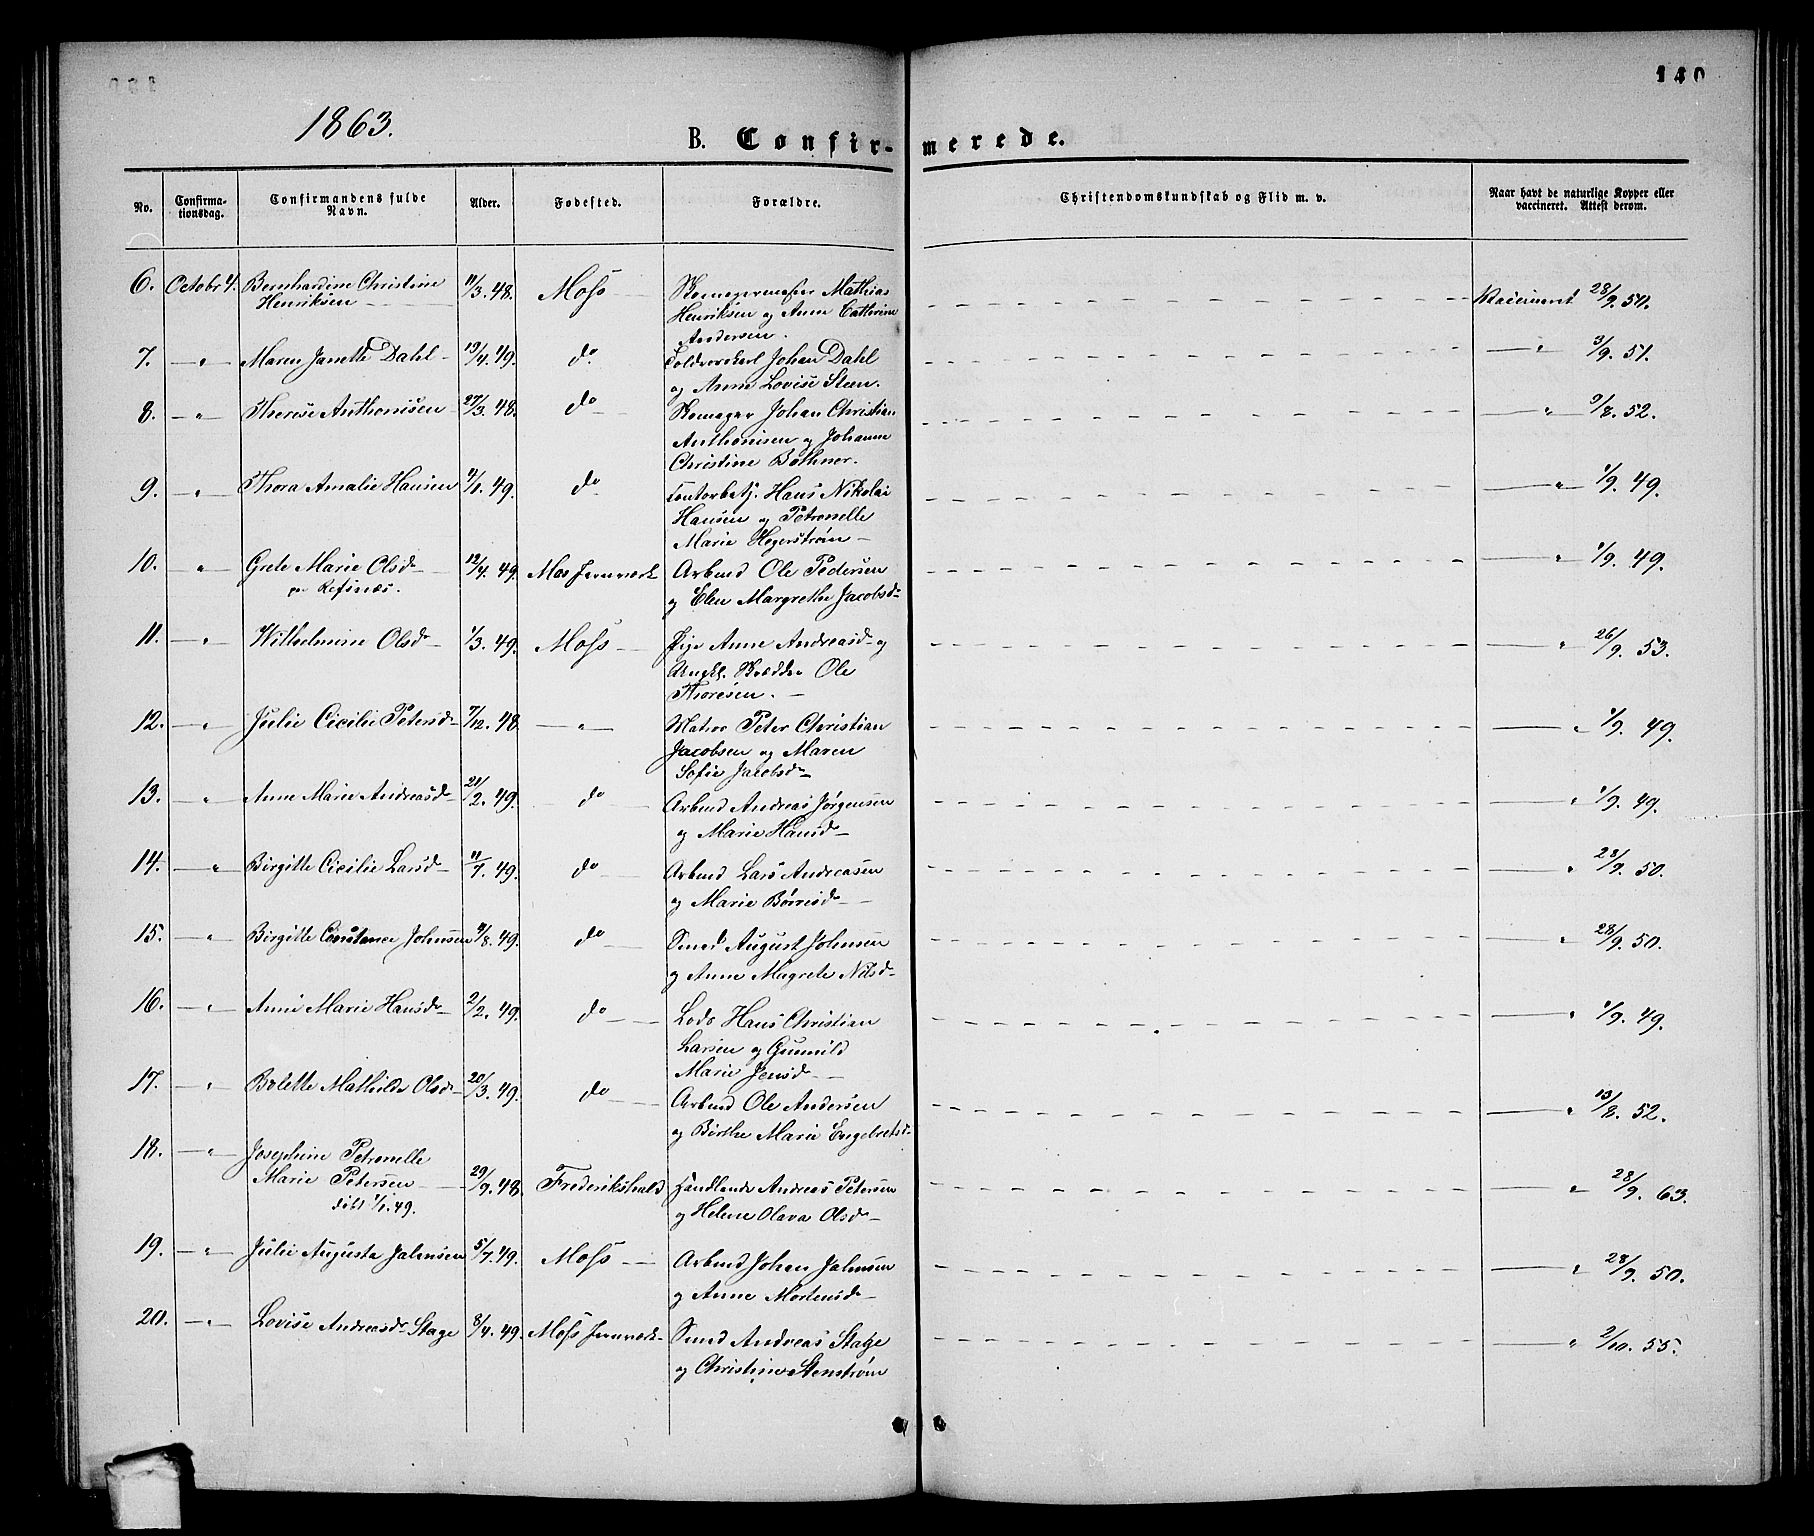 140
1863.
B. Confirmerede.
No.
Confirmationsdag.
Confirmandens fulde Navn.
Alder.
Fødested.
Forældre.
Christendomskundskab og Flid m. v.
Naar havt de naturlige Kopper eller vaccineret. Attest derom.
6. Octobr 4. Bernhardine Christine 11/3. 48. Moss Skomagermester Mathias Vaccineret 28/9. 54.
Henriksen Henriksen og Anne Cathrine
Andersen.
7. " Maren Janette Dahl 13/4. 49. do. Toldvorskarl Johan Dahl " 3/9. 51.
og Anne Lovise Steen.
8. " Therese Anthonisen 27/3. 48. do Skomager Johan Christian " 9/8. 52.
Anthonisen og Johanne
Christine Bøthner.
9. " Thora Amalie Hansen 4/1. 49. do Contorbetj. Hans Nikolai " 1/9. 49.
Hansen og Petronelle
Marie Hegerstrøm
10. " Grete Marie Olsd 12/4. 49. Mos Jernværk Arbmd Ole Pedersen 1/9. 49.
Refsnæs. og Elen Margrethe Jacobsd
11. " Wilhelmine Olsd 1/3. 49. Moss Pige Anne Andreasd og " 26/9. 53.
Ungkl. Skrædder Ole
Thoresen.
12. " Julie Cicilie Petersd 7/12. 48. " Matros Peter Christian " 1/9. 49.
Jacobsen og Maren
Sofie Jacobsd
13. " Anne Marie Andreasd 21/2. 49. do Arbmd Andreas Jørgensen " 1/9. 49.
og Marie Hansd
14. " Birgitte Cicilie Larsd 11/7. 49. do Arbmd Lars Andreasen " 28/9. 50.
og Marie Børresd
15. " Birgitte Constance Johnsen 4/8. 49. do Smed August Johnsen " 28/9. 50.
og Anne Magrete Nilsd
16. " Anne Marie Hansd 2/2. 49. do Lods Hans Christian " 1/9. 49.
Larsen og Gunnild
Marie Jensd
17. " Bolette Mathilde Olsd 20/3. 49. do Arbmd Ole Andersen " 13/8. 52.
og Birthe Marie Engebretsd
18. " Josephine Petronelle
Marie Petersen 29/9. 48. Frederikshald Handlende Andreas Petersen " 28/9. 63.
døbt 1/1. 49. og Helene Olava Olsd
19. " Julie Augusta Johnsen 5/7. 49. Moss Arbmd Johan Johnsen " 28/9. 50.
og Anne Mortensd
20. " Lovise Andreasd Stage 8/4. 49. Moss Jernværk Smed Andreas Stage " 2/10. 55.
og Christine Stenstrøm